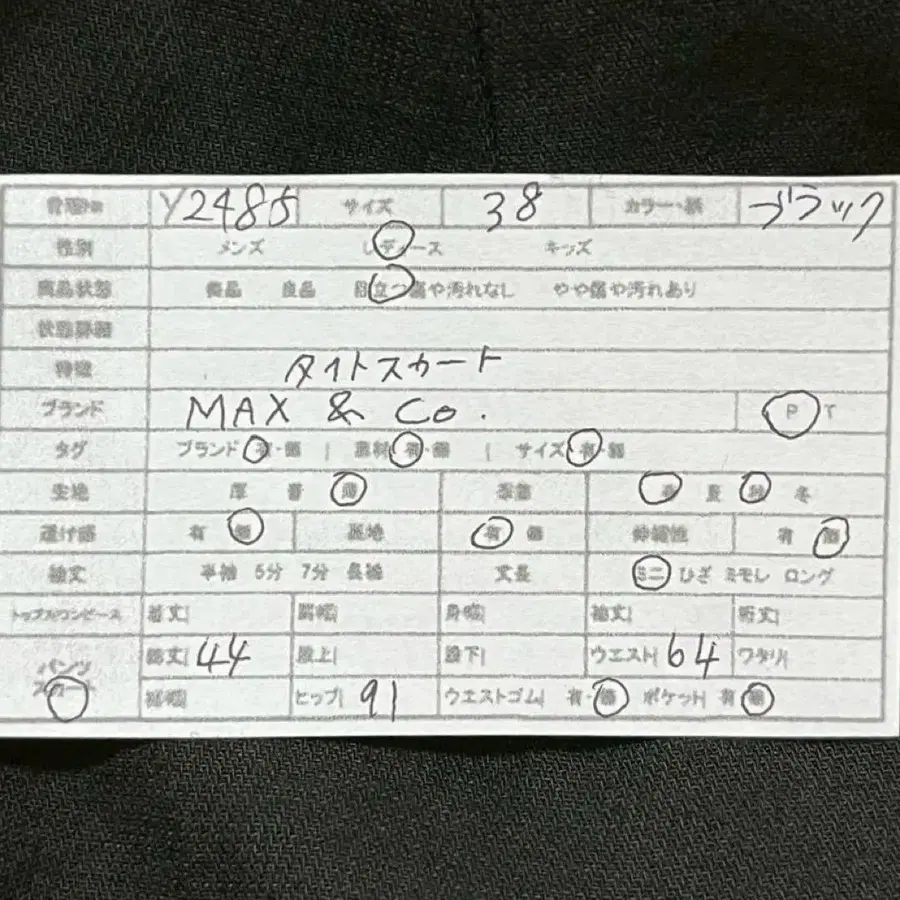 管理No Y2485 サイズ 38 カラー・柄 ブラック
性別 メンズ レディース キッズ
商品状態 美品 良品 目立つ傷や汚れなし やや傷や汚れあり
状態詳細
特徴 タイトスカート
ブランド MAX & Co. P T
タグ ブランド 有・無 | 素材 有・無 | サイズ 有・無
生地 厚 普 薄 季節 春 夏 秋 冬
透け感 有 無 裏地 有 無 伸縮性 有 無
袖丈 半袖 5分 7分 長袖 丈長 ミニ ひざ ミモレ ロング
トップス/ワンピース 着丈| 肩幅| 身幅| 袖丈| 裄丈|
パンツ スカート 総丈| 44 股上| 股下| ウエスト| 64 ワタリ|
裾幅| ヒップ| 91 ウエストゴム| 有・無 ポケット| 有 無